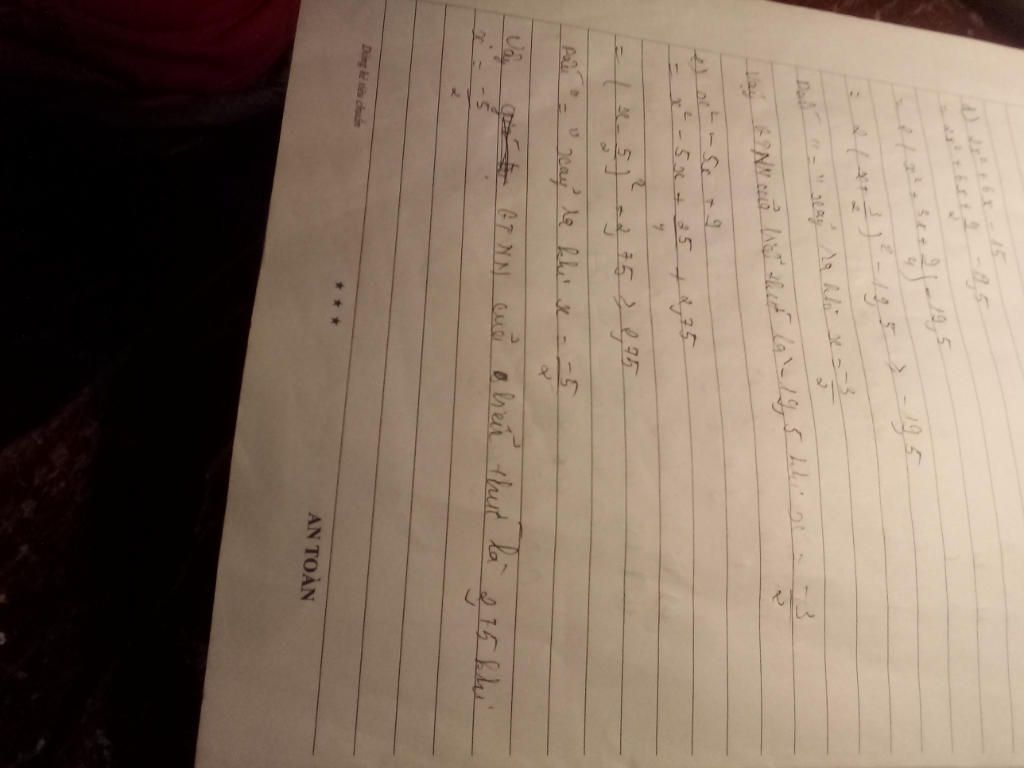 d) 2x² + 6x - 15
= 2x² + 6x + 9/2 - 19,5
= 2(x² + 3x + 9/4) - 19,5
= 2(x + 3/2)² - 19,5 ≥ -19,5
Dấu "=" xảy ra khi x = -3/2
Vậy GTNN của biểu thức là -19,5 khi x = -3/2
e) x² - 5x + 9
= x² - 5x + 25/4 + 2,75
= (x - 5/2)² + 2,75 ≥ 2,75
Dấu "=" xảy ra khi x = -5/2
Vậy GTNN của biểu thức là 2,75 khi
x = -5/2
Đáng kể tiêu chuẩn
★ ★ ★
AN TOÀN